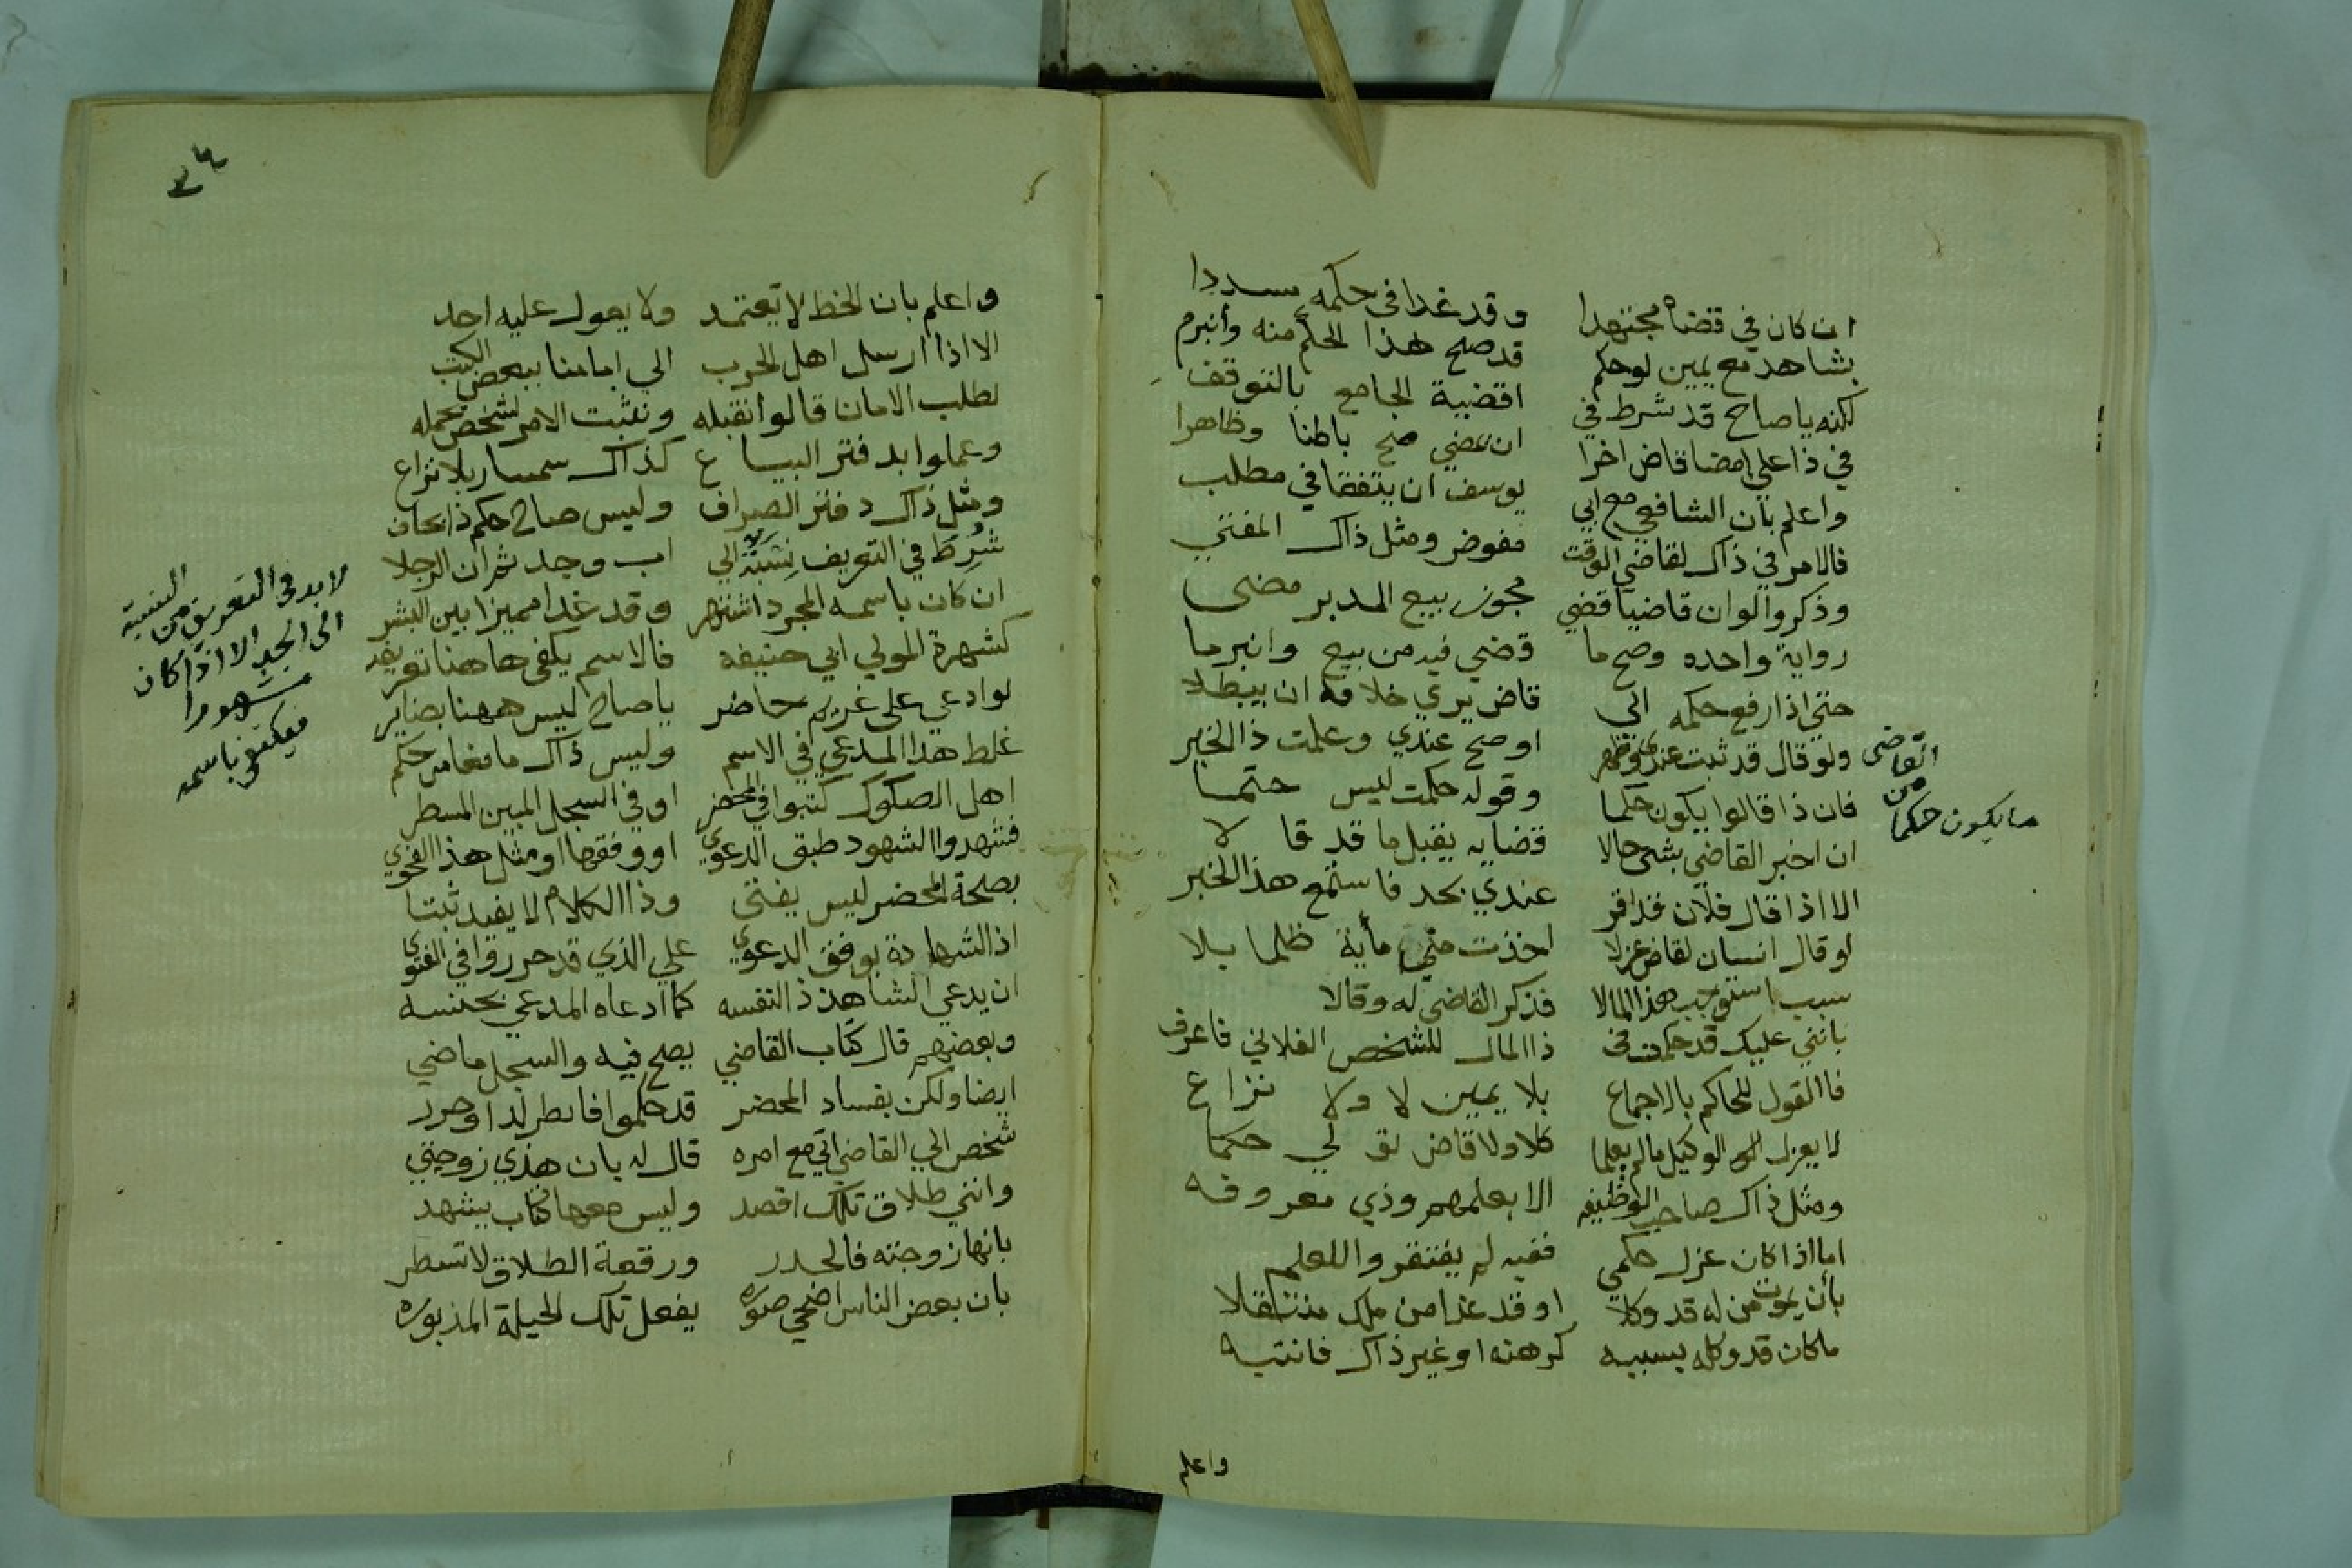 ان كان في قضاه مجتهدا وقد غدا في حكمه سددا
بشاهد مع يمين لو حكم قد صح هذا الحكم منه وأنبرم
لكنه يا صاح قد شرط في اقضية الجامع بالتوقف
في ذا على إمضا قاض اخرا ان يمضي صح باطنا وظاهرا
واعلم بأن الشافعي مع ابي يوسف ان يتفقا في مطلب
فالامر في ذاك لقاضي الوقت مفوض ومثل ذاك المفتي
وذكروا لو ان قاضيا قضي مجوز بيع المدبر مضى
رواية واحده وصح ما قضي فيه من بيع وانبرما
حتي اذا رفع حكمه الي قاض يري خلافه ان يبطلا
ولو قال قد ثبت عندي وظهر او صح عندي وعلمت ذا الخبر
فان ذا قالوا يكون حكما وقوله حكمت ليس حتما
ان اخبر القاضي بشئ حالا قضايه يقبل ما قد قالا
الا اذا قال فلان قد اقر عندي بحد فاستمع هذا الخبر
لو قال انسان لقاض عزلا اخذت مني مأية ظلما بلا
سبب استوجب هذا المالا فذكر القاضي له وقالا
بانني عليك قد حكمت في ذا المال للشخص الفلاني فاعرف
فالقول للحاكم بالاجماع بلا يمين لا ولا نزاع
لا يعزل الوكيل ما لم يعلما كلا ولا قاض تولي حكما
ومثل ذاك صاحب الوظيفه الا بعلمهم وذي معروفه
اما اذا كان عزل حكمي ففيه لم يفتقر واللعلم
بأن يموت من له قد وكلا او قد غدا من ملك منتقلا
ما كان قد وكله بسببه كرهنه او غير ذاك فانتبه
القاضي
من
ما يكون حكما
واعلم
٣٤
واعلم بان الخط لا يعتمد ولا يعول عليه احد
الا اذا ارسل اهل الحرب الي امامنا ببعض الكتب
لطلب الامان قالوا نقبله ونثبت الامر لشخص يحمله
وعملوا بدفتر البياع كذاك سمسار بلا نزاع
ومثل ذاك دفتر الصراف وليس صاح حكم ذا بخاف
شُرِط في التعريف نِسْبَة الي اب وجد ثم ان الرجلا
ان كان باسمه المجرد اشتهر وقد غدا مميزا بين البشر
كشهرة المولي ابي حنيفه فالاسم يكفي هاهنا تعريفه
لو ادعي على غريم حاضر يا صاح ليس ههنا بضاير
غلط هذا المدعي في الاسم وليس ذاك مانعا من حكم
اهل الصكوك كتبوا في المحضر او في السجل المبين المسطر
فشهدوا الشهود طبق الدعوي او وفقها او مثل هذا الفحوي
بصحة المحضر ليس يفتى وذا الكلام لا يفيد ثبتا
اذ الشهادة بوفق الدعوي علي الذي قد حرروا في الفتوي
ان يدعي الشاهد ذا لنفسه كما ادعاه المدعي بجنسه
وبعضهم قال كتاب القاضي يصح فيه والسجل ماضي
ايضا ولكن بفساد المحضر قد حكموا فانظر لذا وحرر
شخص الي القاضي اتي مع امره قال له بان هذي زوجتي
وانني طلاق تلك اقصد وليس معها كتاب يشهد
بانها زوجته فالحدر ورقعة الطلاق لا تسطر
بان بعض الناس اضحي صوره يفعل تلك الحيلة المذبوره
لا بد في التعريف من النسبة
الى الجد الا اذا كان
مشهورا
فيكتفى باسمه